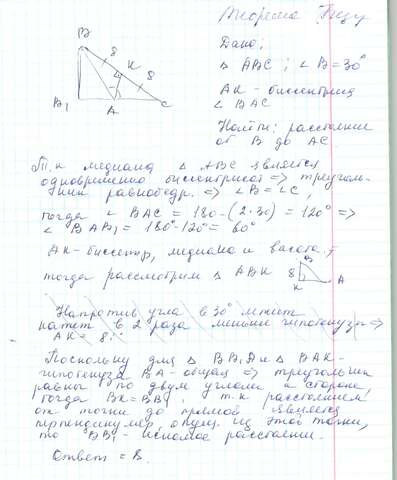 Теорема
Дано:
△ ABC ; ∠ B = 30°
AK - биссектриса
∠ BAC
Найти: расстояние
от B до AC
B
8
K
8
B₁
A
C
Т.к медиана △ ABC является
одновременно биссектрисой => треуголь-
ник равнобедр. => ∠B = ∠C,
тогда ∠ BAC = 180-(2·30) = 120° =>
∠ BAB₁ = 180°-120° = 60°
AK-биссектр, медиана и высота
тогда рассмотрим △ ABK
B
8
K
A
Напротив угла в 30° лежит
катет в 2 раза меньше гипотенузы =>
AK = 8
Поскольку для △ BB₁A и △ BAK -
гипотенуза BA - общая => треугольники
равны по двум углам и стороне,
тогда BK = BB₁, т.к расстоянием
от точки до прямой является
перпендикуляр, опущ. из этой точки,
то BB₁ - искомое расстояние.
Ответ = 8.